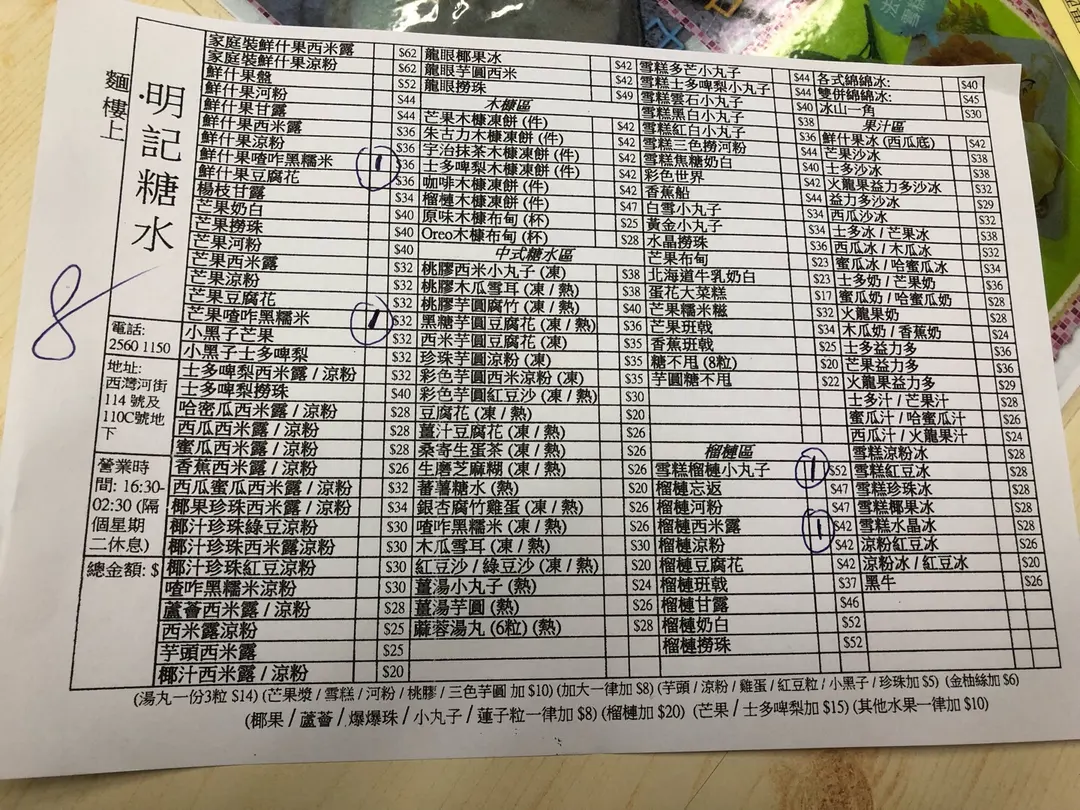 麵樓上
.明記糖水
8
電話:
2560 1150
地址:
西灣河街
114 號及
110C號地
下
營業時
間: 16:30-
02:30 (隔
個星期
二休息)
總金額: $
家庭裝鮮什果西米露 $62
家庭裝鮮什果涼粉 $62
鮮什果盤 $52
鮮什果河粉 $44
鮮什果甘露 $44
鮮什果西米露 $36
鮮什果涼粉 $36
鮮什果喳咋黑糯米 1 $36
鮮什果豆腐花 $36
楊枝甘露 $34
芒果奶白 $40
芒果撈珠 $40
芒果河粉 $40
芒果西米露 $32
芒果涼粉 $32
芒果豆腐花 $32
芒果喳咋黑糯米 1 $32
小黑子芒果 $32
小黑子士多啤梨 $32
士多啤梨西米露 / 涼粉 $32
士多啤梨撈珠 $40
哈密瓜西米露 / 涼粉 $28
西瓜西米露 / 涼粉 $28
蜜瓜西米露 / 涼粉 $28
香蕉西米露 / 涼粉 $26
西瓜蜜瓜西米露 / 涼粉 $32
椰果珍珠西米露 / 涼粉 $34
椰汁珍珠綠豆涼粉 $30
椰汁珍珠西米露涼粉 $30
椰汁珍珠紅豆涼粉 $30
喳咋黑糯米涼粉 $30
蘆薈西米露 / 涼粉 $28
西米露涼粉 $25
芋頭西米露 $25
椰汁西米露 / 涼粉 $20
龍眼椰果冰 $42
龍眼芋圓西米 $42
龍眼撈珠 $49
木糠區
芒果木糠凍餅 (件) $42
朱古力木糠凍餅 (件) $42
宇治抹茶木糠凍餅 (件) $42
士多啤梨木糠凍餅 (件) $42
咖啡木糠凍餅 (件) $42
榴槤木糠凍餅 (件) $47
原味木糠布甸 (杯) $25
Oreo木糠布甸 (杯) $28
中式糖水區
桃膠西米小丸子 (凍) $38
桃膠木瓜雪耳 (凍 / 熱) $38
桃膠芋圓腐竹 (凍 / 熱) $40
黑糖芋圓豆腐花 (凍 / 熱) $36
西米芋圓豆腐花 (凍) $35
珍珠芋圓涼粉 (凍) $35
彩色芋圓西米涼粉 (凍) $35
彩色芋圓紅豆沙 (凍 / 熱) $30
豆腐花 (凍 / 熱) $20
薑汁豆腐花 (凍 / 熱) $26
桑寄生蛋茶 (凍 / 熱) $26
生磨芝麻糊 (凍 / 熱) $26
蕃薯糖水 (熱) $20
銀杏腐竹雞蛋 (凍 / 熱) $26
喳咋黑糯米 (凍 / 熱) $26
木瓜雪耳 (凍 / 熱) $26
紅豆沙 / 綠豆沙 (凍 / 熱) $20
薑湯小丸子 (熱) $24
薑湯芋圓 (熱) $26
蔴蓉湯丸 (6粒) (熱) $28
雪糕多芒小丸子 $44
雪糕士多啤梨小丸子 $44
雪糕雲石小丸子 $40
雪糕黑白小丸子 $38
雪糕紅白小丸子 $36
雪糕三色撈河粉 $44
雪糕焦糖奶白 $40
彩色世界 $42
香蕉船 $44
白雪小丸子 $34
黃金小丸子 $34
水晶撈珠 $36
芒果布甸 $23
北海道牛乳奶白 $23
蛋花大菜糕 $17
芒果糯米糍 $32
芒果班戟 $34
香蕉班戟 $25
糖不甩 (8粒) $20
芋圓糖不甩 $22
榴槤區
雪糕榴槤小丸子 1 $52
榴槤忘返 $47
榴槤河粉 $47
榴槤西米露 1 $42
榴槤涼粉 $42
榴槤豆腐花 $42
榴槤班戟 $37
榴槤甘露 $46
榴槤奶白 $52
榴槤撈珠 $52
各式綿綿冰: $40
雙併綿綿冰: $45
冰山一角 $30
果汁區
鮮什果冰 (西瓜底) $42
芒果沙冰 $38
士多沙冰 $38
火龍果益力多沙冰 $32
益力多沙冰 $29
西瓜沙冰 $32
士多冰 / 芒果冰 $38
西瓜冰 / 木瓜冰 $32
蜜瓜冰 / 哈蜜瓜冰 $34
士多奶 / 芒果奶 $36
蜜瓜奶 / 哈蜜瓜奶 $28
火龍果奶 $28
木瓜奶 / 香蕉奶 $24
士多益力多 $36
芒果益力多 $36
火龍果益力多 $29
士多汁 / 芒果汁 $28
蜜瓜汁 / 哈蜜瓜汁 $26
西瓜汁 / 火龍果汁 $24
雪糕涼粉冰 $28
雪糕紅豆冰 $28
雪糕珍珠冰 $28
雪糕椰果冰 $28
雪糕水晶冰 $28
涼粉紅豆冰 $26
涼粉冰 / 紅豆冰 $20
黑牛 $26
(湯丸一份3粒 $14) (芒果漿 / 雪糕 / 河粉 / 桃膠 / 三色芋圓 加 $10) (加大一律加 $8) (芋頭 / 涼粉 / 雞蛋 / 紅豆粒 / 小黑子 / 珍珠加 $5) (金柚絲加 $6)
(椰果 / 蘆薈 / 爆爆珠 / 小丸子 / 蓮子粒一律加 $8) (榴槤加 $20) (芒果 / 士多啤梨加 $15) (其他水果一律加 $10)